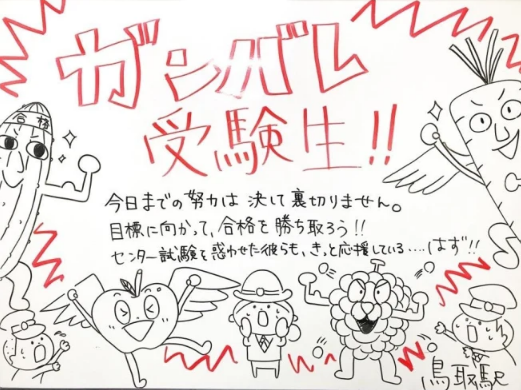 ガンバレ
受験生!!
合格
今日までの努力は 決して裏切りません。
目標に向かって、合格を勝ち取ろう!!
センター試験を惑わせた彼らも、きっと応援している‥‥はず!!
鳥取駅